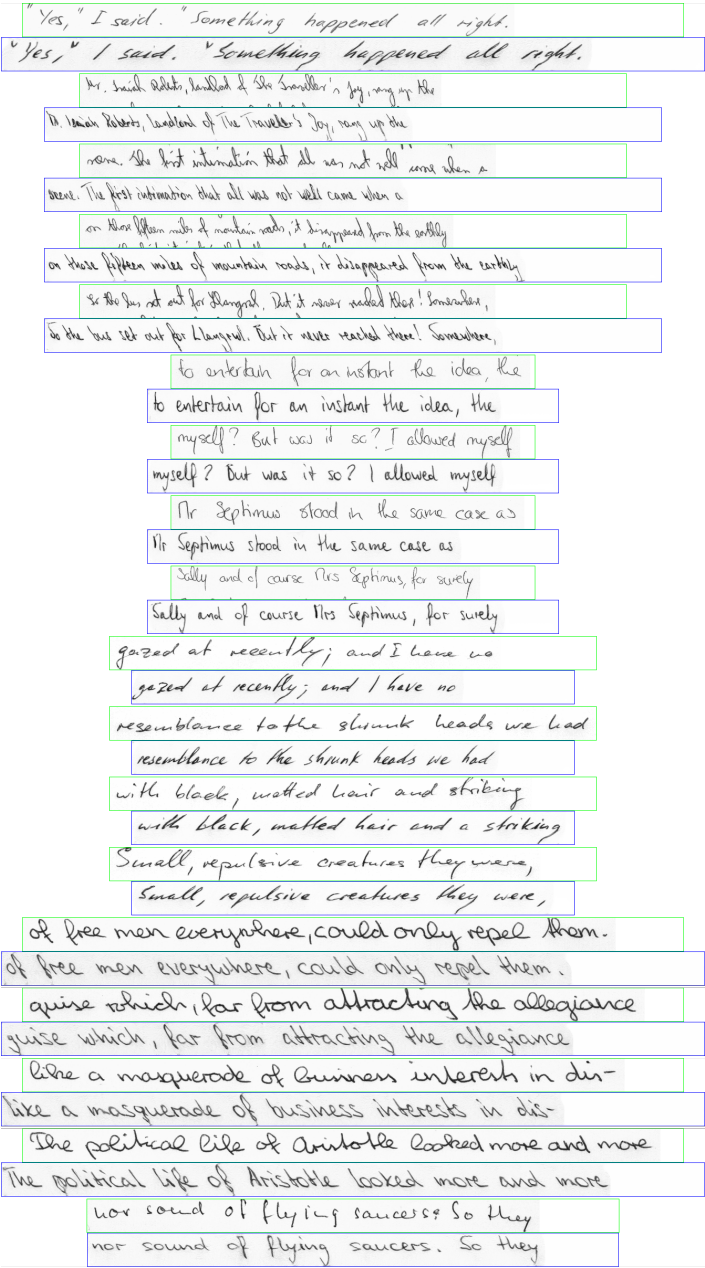 "Yes," I said. "Something happened all right.
"Yes," I said. "Something happened all right.
Mr. Isaiah Roberts, landlord of The Traveller's Joy, rang up the
Mr. Isaiah Roberts, Landlord of The Traveler's Joy, rang up the
scene. The first intimation that all was not well came when a
scene. The first intimation that all was not well came when a
on those fifteen miles of mountain roads, it disappeared from the earthly
on those fifteen miles of mountain roads, it disappeared from the earthly
So the bus set out for Llangrwl. But it never reached there! Somewhere,
So the bus set out for Llangrwl. But it never reached there! Somewhere,
to entertain for an instant the idea, the
to entertain for an instant the idea, the
myself? But was it so? I allowed myself
myself? But was it so? I allowed myself
Mr Septimus stood in the same case as
Mr Septimus stood in the same case as
Sally and of course Mrs Septimus, for surely
Sally and of course Mrs Septimus, for surely
gazed at recently; and I have no
gazed at recently; and I have no
resemblance to the shrunk heads we had
resemblance to the shrunk heads we had
with black, matted hair and striking
with black, matted hair and a striking
Small, repulsive creatures they were,
Small, repulsive creatures they were,
of free men everywhere, could only repel them.
of free men everywhere, could only repel them.
guise which, far from attracting the allegiance
guise which, far from attracting the allegiance
like a masquerade of business interests in dis-
like a masquerade of business interests in dis-
The political life of Aristotle looked more and more
The political life of Aristotle looked more and more
nor sound of flying saucers. So they
nor sound of flying saucers. So they